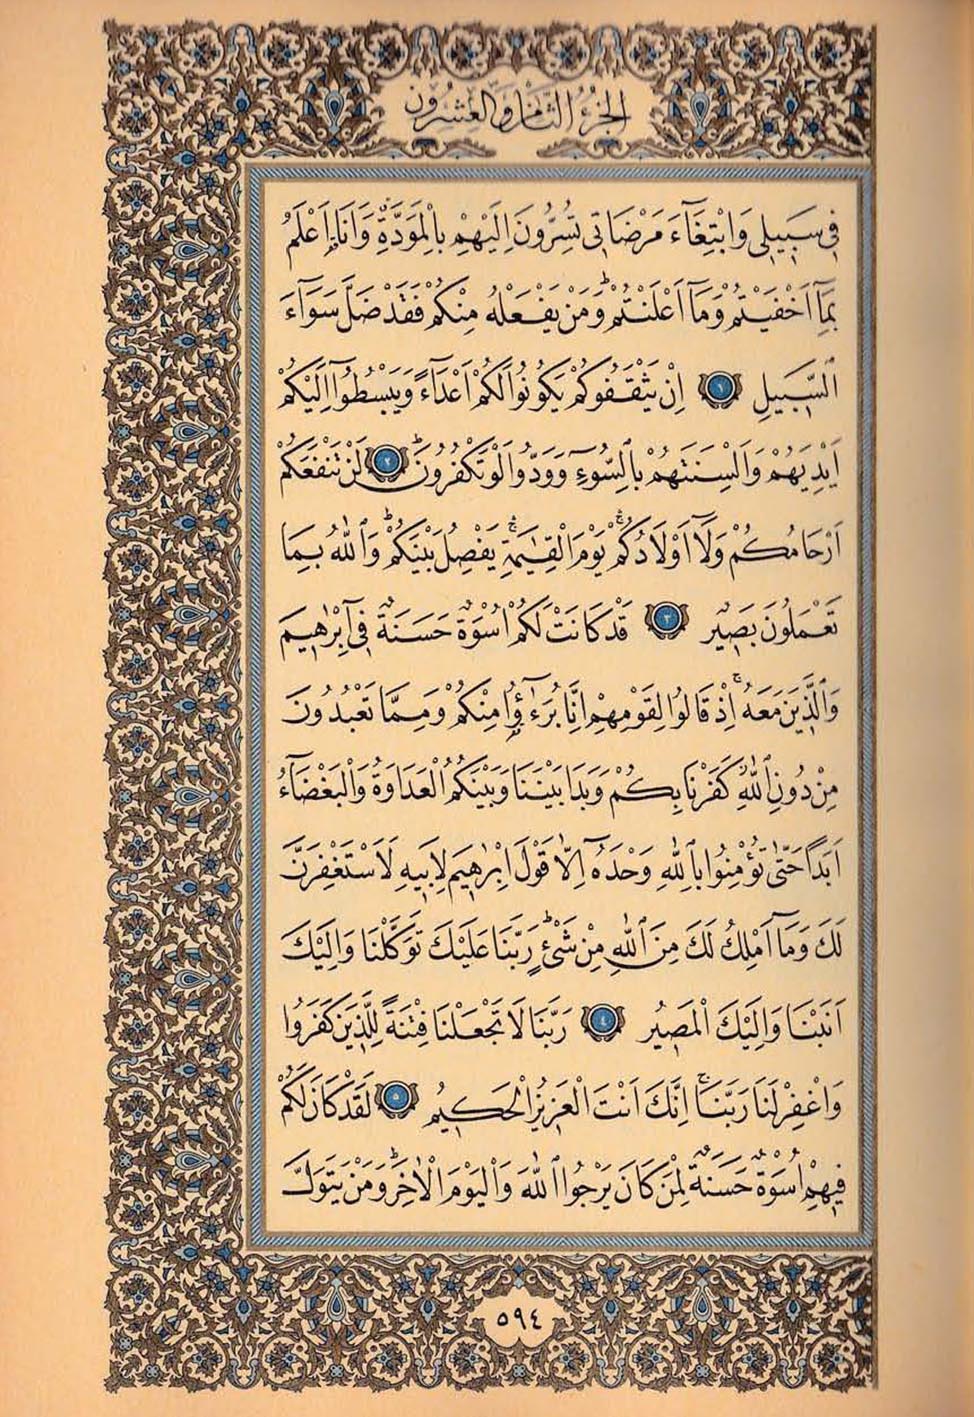 الجزء الثامن والعشرون
فِى سَبٖيلٖى وَابْتِغَٓاءَ مَرْضَاتٖى تُسِرُّونَ اِلَيْهِمْ بِالْمَوَدَّةِۗ وَاَنَا۬ اَعْلَمُ
بِمَٓا اَخْفَيْتُمْ وَمَٓا اَعْلَنْتُمْۜ وَمَنْ يَفْعَلْهُ مِنْكُمْ فَقَدْ ضَلَّ سَوَٓاءَ
السَّبٖيلِ ١ اِنْ يَثْقَفُوكُمْ يَكُونُوا لَكُمْ اَعْدَٓاءً وَيَبْسُطُٓوا اِلَيْكُمْ
اَيْدِيَهُمْ وَاَلْسِنَتَهُمْ بِالسُّٓوءِ وَوَدُّوا لَوْ تَكْفُرُونَۜ ٢ لَنْ تَنْفَعَكُمْ
اَرْحَامُكُمْ وَلَٓا اَوْلَادُكُمْۚ يَوْمَ الْقِيٰمَةِۚ يَفْصِلُ بَيْنَكُمْۜ وَاللّٰهُ بِمَا
تَعْمَلُونَ بَصٖيرٌ ٣ قَدْ كَانَتْ لَكُمْ اُسْوَةٌ حَسَنَةٌ فٖٓى اِبْرٰهٖيمَ
وَالَّذٖينَ مَعَهُۚ اِذْ قَالُوا لِقَوْمِهِمْ اِنَّا بُرَءٰٓؤُ۬ا مِنْكُمْ وَمِمَّا تَعْبُدُونَ
مِنْ دُونِ اللّٰهِۘ كَفَرْنَا بِكُمْ وَبَدَا بَيْنَنَا وَبَيْنَكُمُ الْعَدَاوَةُ وَالْبَغْضَٓاءُ
اَبَدًا حَتّٰى تُؤْمِنُوا بِاللّٰهِ وَحْدَهُٓ اِلَّا قَوْلَ اِبْرٰهٖيمَ لِاَبٖيهِ لَاَسْتَغْفِرَنَّ
لَكَ وَمَٓا اَمْلِكُ لَكَ مِنَ اللّٰهِ مِنْ شَىْءٍۜ رَبَّنَا عَلَيْكَ تَوَكَّلْنَا وَاِلَيْكَ
اَنَبْنَا وَاِلَيْكَ الْمَصٖيرُ ٤ رَبَّنَا لَا تَجْعَلْنَا فِتْنَةً لِلَّذٖينَ كَفَرُوا
وَاغْفِرْ لَنَا رَبَّنَاۚ اِنَّكَ اَنْتَ الْعَزٖيزُ الْحَكٖيمُ ٥ لَقَدْ كَانَ لَكُمْ
فٖيهِمْ اُسْوَةٌ حَسَنَةٌ لِمَنْ كَانَ يَرْجُوا اللّٰهَ وَالْيَوْمَ الْاٰخِرَۜ وَمَنْ يَتَوَلَّ
٥٩٤